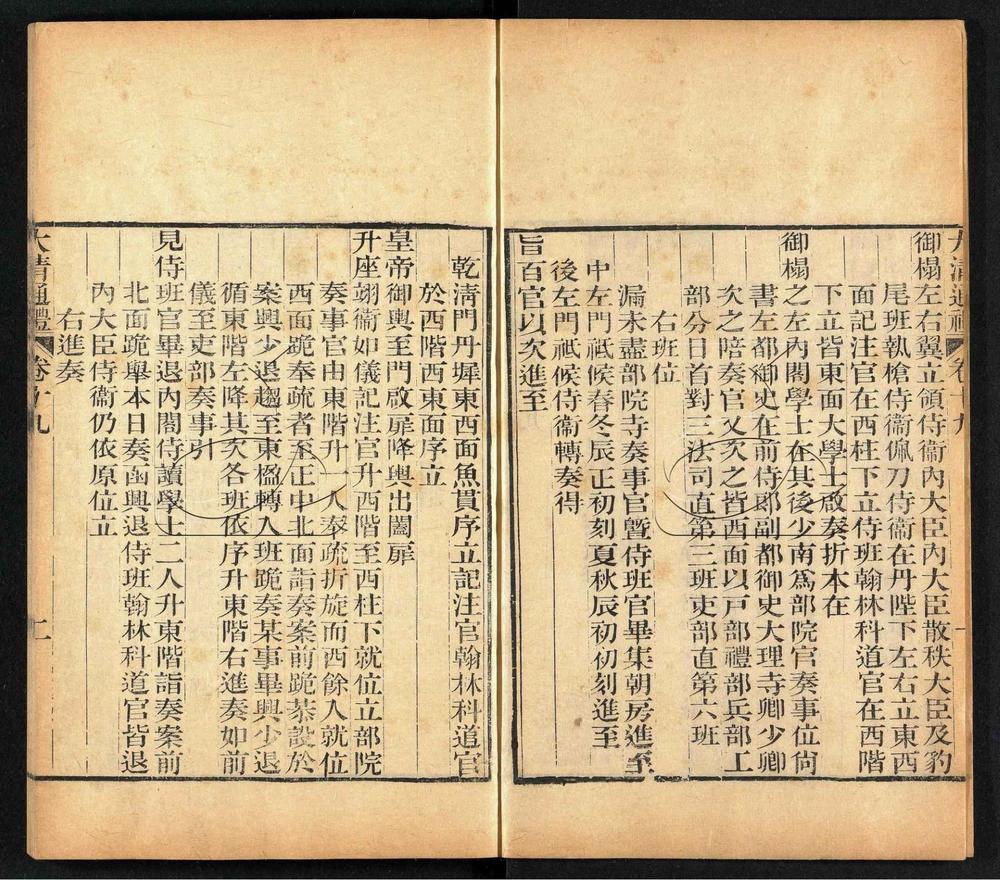 大清通禮 卷十九 一
御榻左右翼立領侍衞內大臣內大臣散秩大臣及豹
尾班執槍侍衞佩刀侍衞在丹陛下左右立東西
面記注官在西柱下立侍班翰林科道官在西階
下立皆東面大學士啟奏折本在
御榻之左內閣學士在其後少南爲部院官奏事位尙
書左都御史在前侍郎副都御史大理寺卿少卿
次之陪奏官又次之皆西面以戸部禮部兵部工
部分日首對三法司直第三班吏部直第六班
右班位
漏未盡部院寺奏事官曁侍班官畢集朝房進至
中左門祗候春冬辰正初刻夏秋辰初初刻進至
後左門祗候侍衞轉奏得
旨百官以次進至
乾淸門丹墀東西面魚貫序立記注官翰林科道官
於西階西東面序立
皇帝御輿至門啟扉降輿出闔扉
升座翊衞如儀記注官升西階至西柱下就位立部院
奏事官由東階升一人奉疏折旋而西餘入就位
西面跪奉疏者至正中北面詣奏案前跪恭設於
案興少退趨至東楹轉入班跪奏某事畢興少退
循東階左降其次各班依序升東階右進奏如前
儀至吏部奏事引
見侍班官畢退內閣侍讀學士二人升東階詣奏案前
北面跪舉本日奏函興退侍班翰林科道官皆退
內大臣侍衞仍依原位立
右進奏
大清通禮 卷十九 二